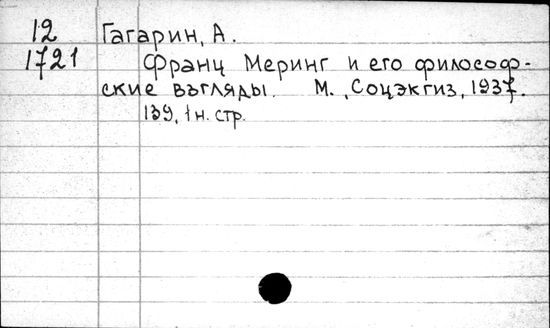 12 Гагарин, А.
1721 Франц Меринг и его философ-
ские взгляды. М., Соцэкгиз, 1937.
139, 1 н. стр.